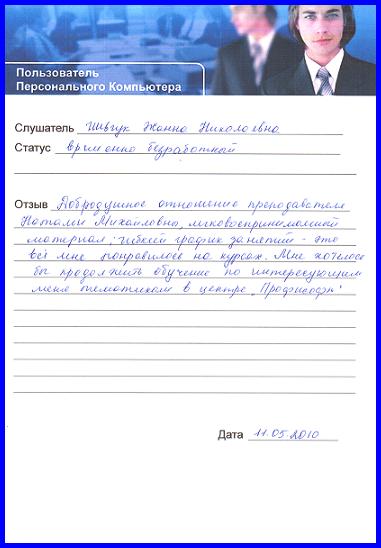 Пользователь
Персонального Компьютера
Слушатель Шевчук Жанна Николаевна
Статус временно безработный
Отзыв Добродушное отношение преподавателя
Натальи Михайловны, легковоспринимающий
материал, гибкий график занятий - это
всё мне понравилось на курсах. Мне хотелось
бы продолжить обучение по интересующим
меня тематикам в центре „Профисофт"
Дата 11.05.2010